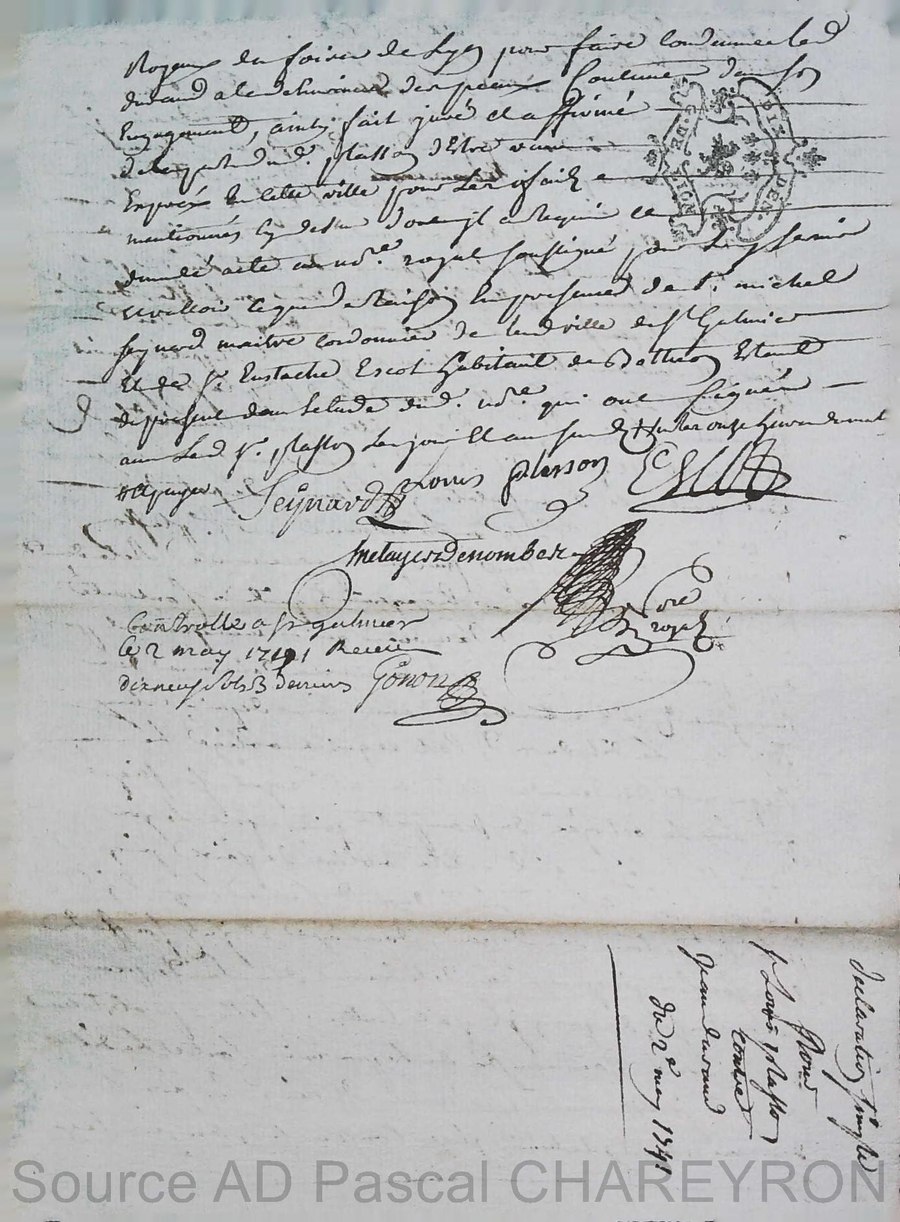 Royaux des foires de Lyon pour faire condamner led
durand a la delivrance des peaux Contenues dans son
Engagement, ainsy fait juré et affirmé
de la part dud. sr. plasson d'Estre venu
Exprés En cette ville pour les faits
mentionnés cy dessus dont jl a requis
acte a no.re royal soussigné pour luy servir
et valloir ce que de raison En presence de sr. michel
seynard maitre cordonnier de lad ville de st Galmier
Et de sr. Eustache Escot habitant de Botheon Estant
de present dans l'etude dud. no.re qui ont signés
avec led sr. plasson les jour Et an
Seÿnard Louis plasson Escot
metayer Denombes
No.re royal
Controllé a st galmier
le 2 may 1741 Receu
dix neuf sols 3 deniers Gonon
declaration simple
Pour
sr Louis plasson
contre
jean durand
du 2e may 1741
Source AD Pascal CHAREYRON